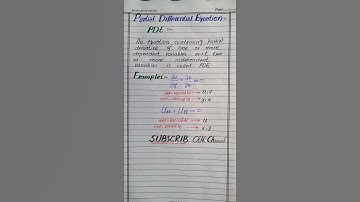 Partial Differential Equation:-
PDE :-
An Equation containing partial
derivative of one or more
dependent variables w.r.t two
or more independent
variables is called PDE.
Examples:- ∂u/∂y + ∂v/∂x = 0
dep-variable → u, v
ind-variable → y, x
Uxx + Uyy = 0
dep-variable → u
ind-variable → x, y
SUBSCRIB OUR Channel